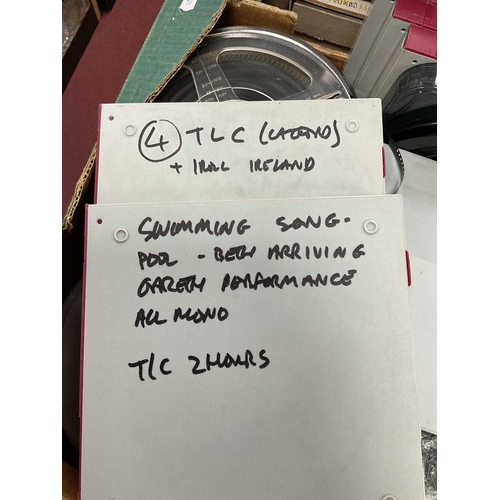 ④ TLC (LEGEND)
+ IRAL IRELAND
SWIMMING SONG.
POOL - BETH ARRIVING
GARETH PERFORMANCE
ALL MONO
T/C 2 HOURS